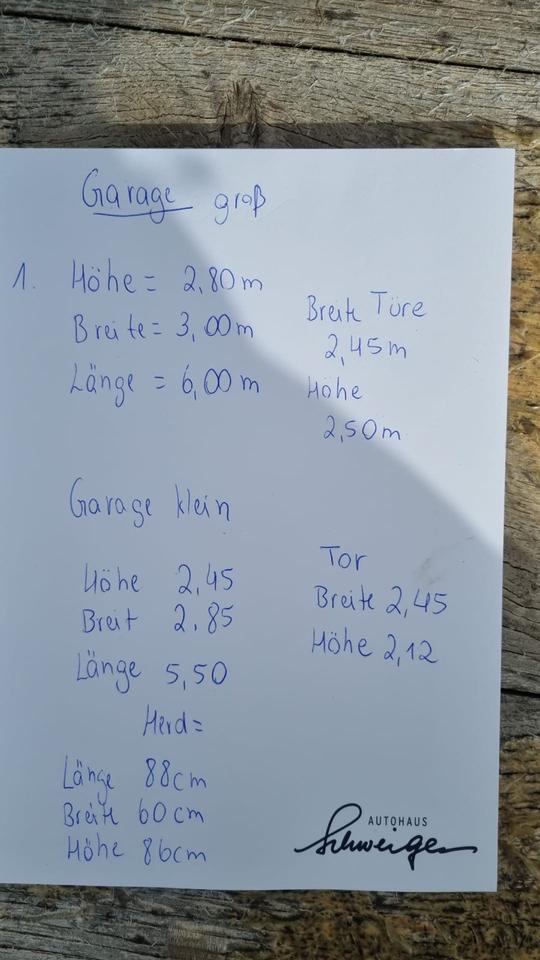 Garage groß
1. Höhe = 2,80m
Breite = 3,00m
Länge = 6,00m
Breite Türe
2,45m
Höhe
2,50m
Garage klein
Höhe 2,45
Breit 2.85
Länge 5,50
Tor
Breite 2,45
Höhe 2,12
Herd=
Länge 88cm
Breite 60cm
Höhe 86cm
AUTOHAUS
Schweiger